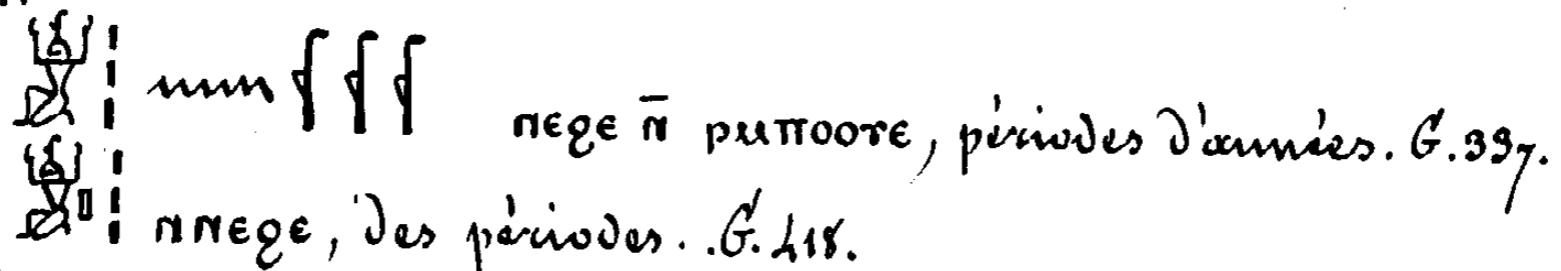 𓈖 𓆳𓆳𓆳 ⲛⲉϩⲉ ⲛ̄ ⲣⲙⲡⲟⲟⲩⲉ, périodes d'années. G. 337.
ⲛⲛⲉϩⲉ, des périodes. .G. 418.